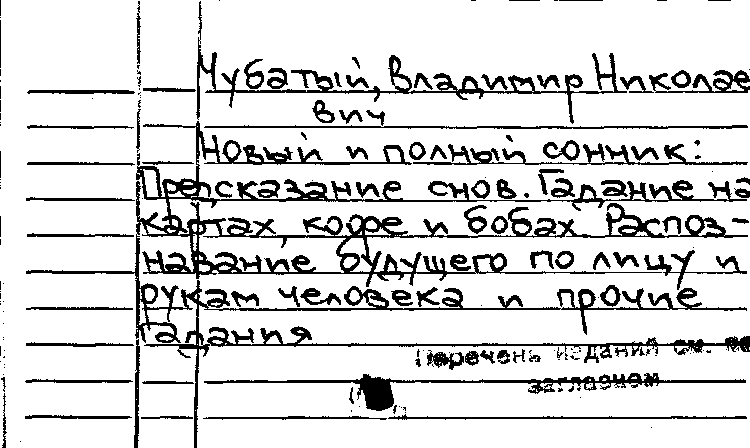 Чубатый, Владимир Николае
вич
Новый и полный сонник:
Предсказание снов. Гадание на
картах, кофе и бобах. Распоз-
навание будущего по лицу и
рукам человека и прочие
гадания
Перечень изданий см. на
заглавном